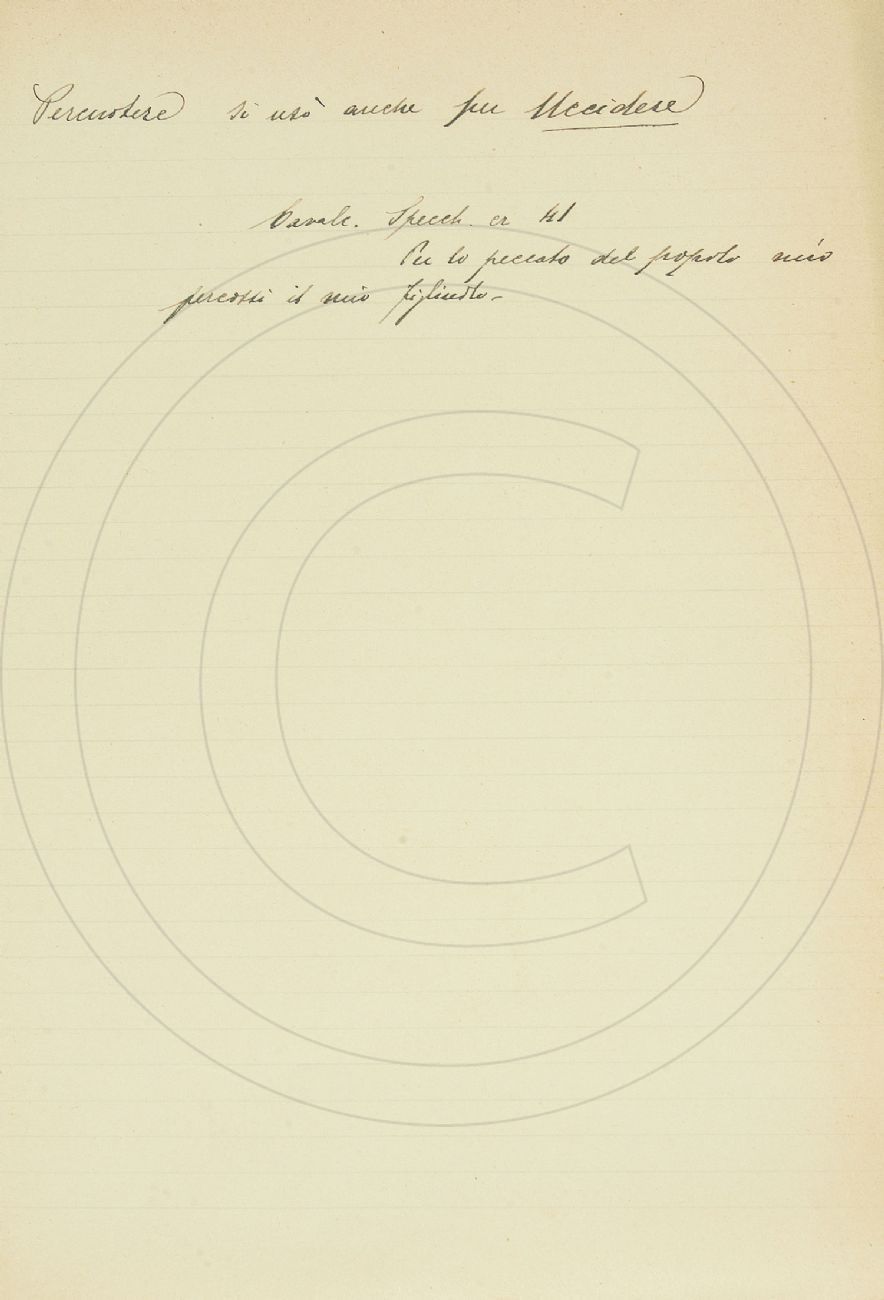 Percuotere si usò anche per Uccidere
Cavalc. Specch. cr 41
Per lo peccato del popolo mio
percossi il mio figliuolo -